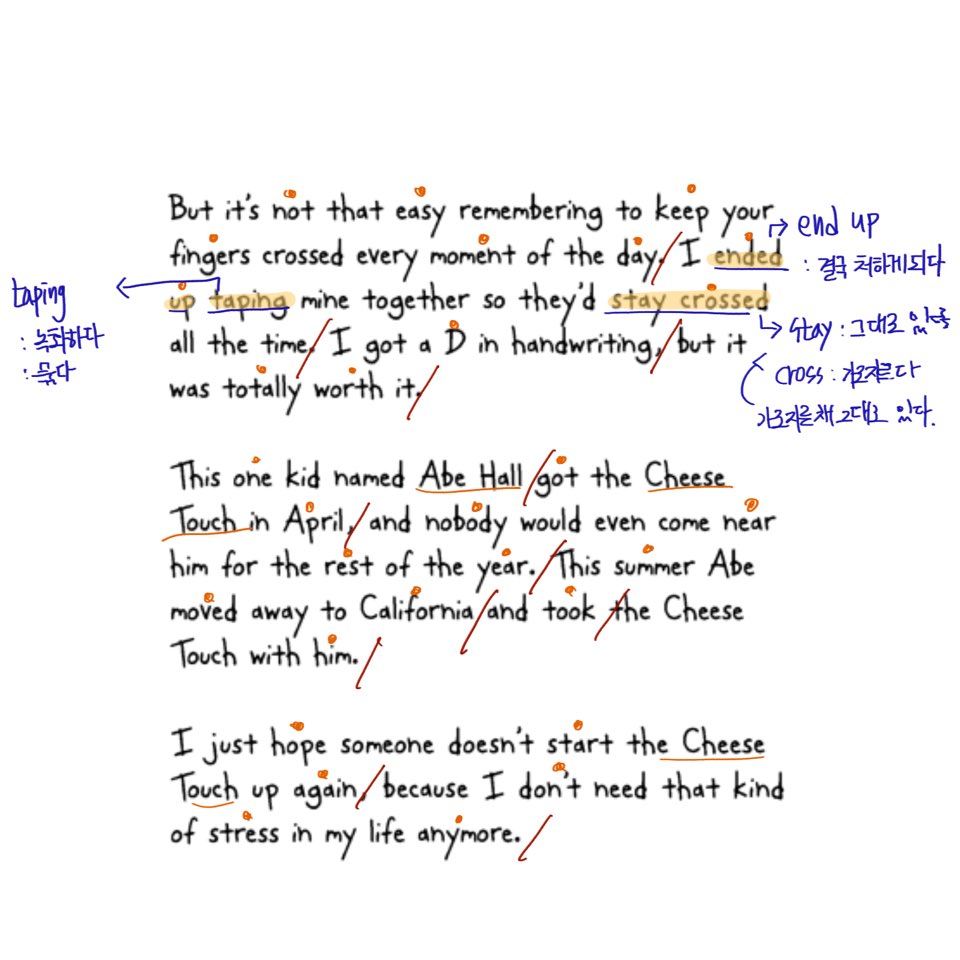 But it's not that easy remembering to keep your
fingers crossed every moment of the day. I ended
up taping mine together so they'd stay crossed
all the time. I got a D in handwriting, but it
was totally worth it.
This one kid named Abe Hall got the Cheese
Touch in April, and nobody would even come near
him for the rest of the year. This summer Abe
moved away to California and took the Cheese
Touch with him.
I just hope someone doesn't start the Cheese
Touch up again, because I don't need that kind
of stress in my life anymore.
end up
: 결국 처하게되다
taping
: 녹화하다
: 묶다
stay : 그대로 있
cross : 가로지르다
가로지른채 그대로 있다.